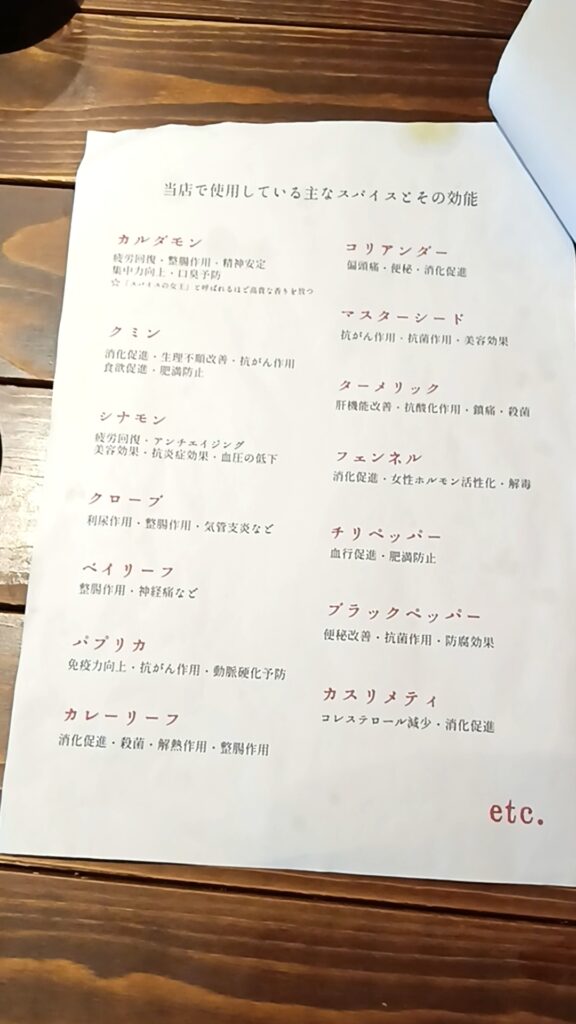 当店で使用している主なスパイスとその効能
カルダモン
疲労回復・整腸作用・精神安定
集中力向上・口臭予防
☆「スパイスの女王」と呼ばれるほど高貴な香りを放つ
クミン
消化促進・生理不順改善・抗がん作用
食欲促進・肥満防止
シナモン
疲労回復・アンチエイジング
美容効果・抗炎症効果・血圧の低下
クローブ
利尿作用・整腸作用・気管支炎など
ベイリーフ
整腸作用・神経痛など
パプリカ
免疫力向上・抗がん作用・動脈硬化予防
カレーリーフ
消化促進・殺菌・解熱作用・整腸作用
コリアンダー
偏頭痛・便秘・消化促進
マスターシード
抗がん作用・抗菌作用・美容効果
ターメリック
肝機能改善・抗酸化作用・鎮痛・殺菌
フェンネル
消化促進・女性ホルモン活性化・解毒
チリペッパー
血行促進・肥満防止
ブラックペッパー
便秘改善・抗菌作用・防腐効果
カスリメティ
コレステロール減少・消化促進
etc.